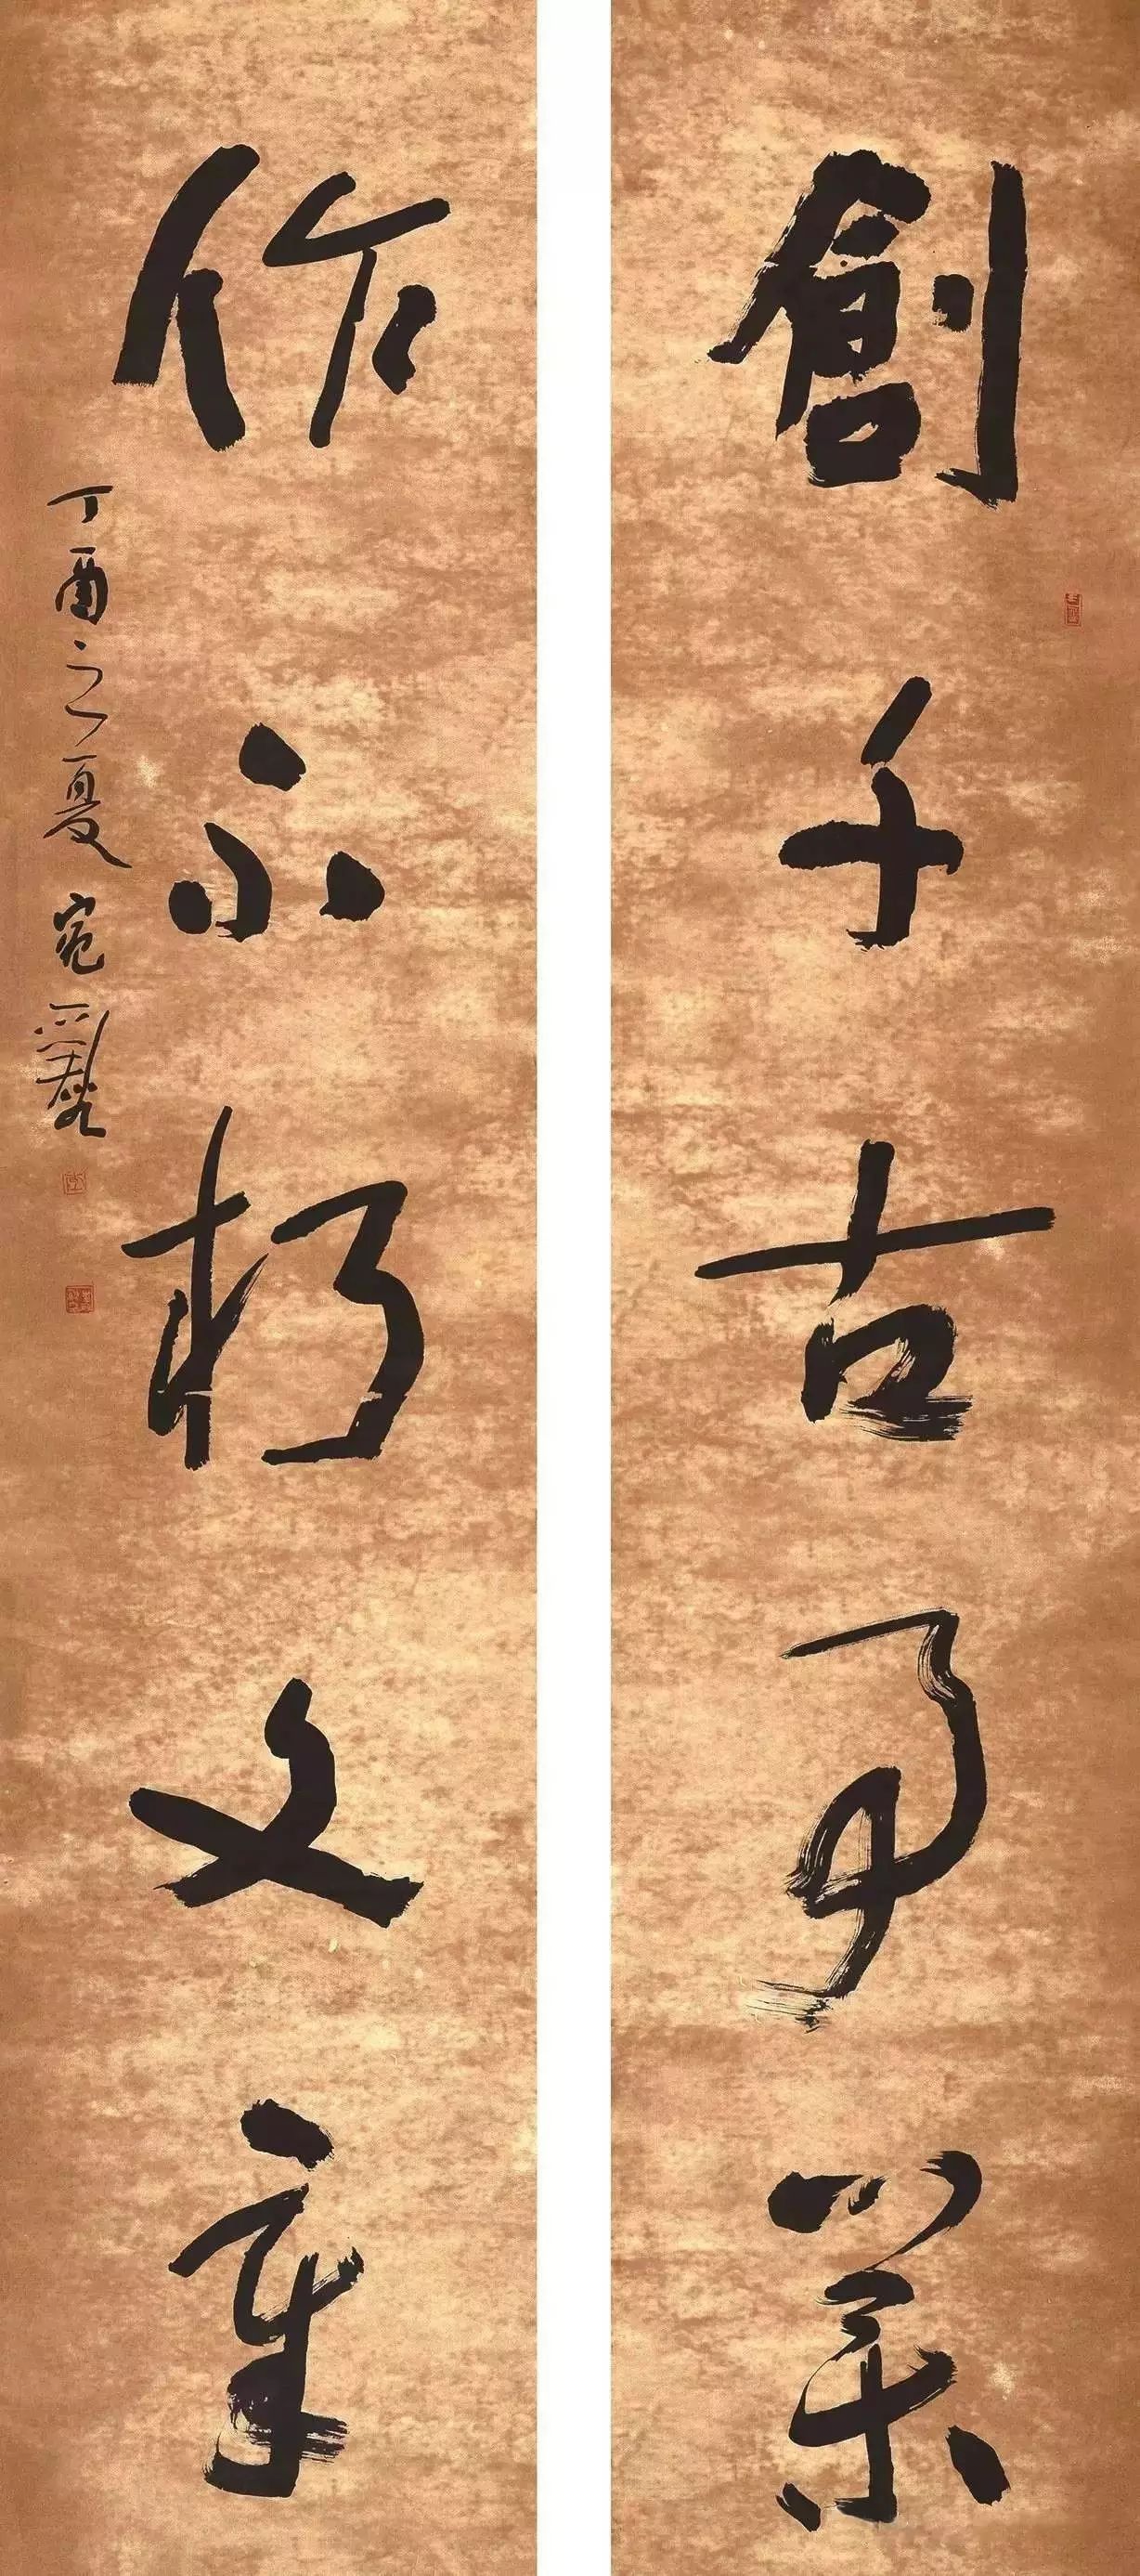 創千古事業
作不朽文章
丁酉之夏 宛